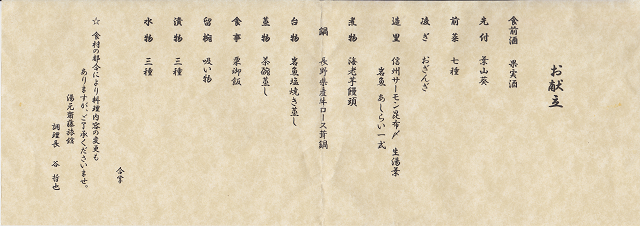 お献立
食前酒　果実酒
先付　葉山葵
前菜　七種
凌ぎ　おざんざ
造里　信州サーモン昆布〆　生湯葉
岩魚　あしらい一式
煮物　海老芋饅頭
鍋　長野県産牛ロース茸鍋
台物　岩魚塩焼き蒸し
蒸物　茶碗蒸し
食事　栗御飯
留椀　吸い物
漬物　三種
水物　三種
☆　食材の都合により料理内容の変更も
ありますが、ご了承くださいませ。
湯元齋藤旅館
調理長　谷　哲也
合掌